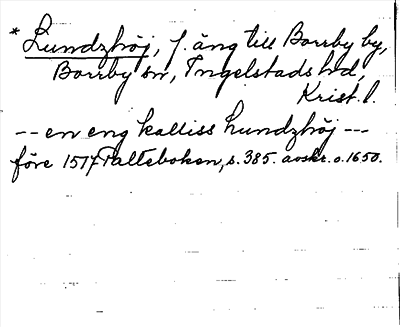 * Lundzhöj, f. äng till Borrby by,
Borrby sn, Ingelstads hd,
Krist. l.
-- en eng kalliss Lundzhöj ---
före 1517 Palteboken, s. 385. avskr. o. 1650.